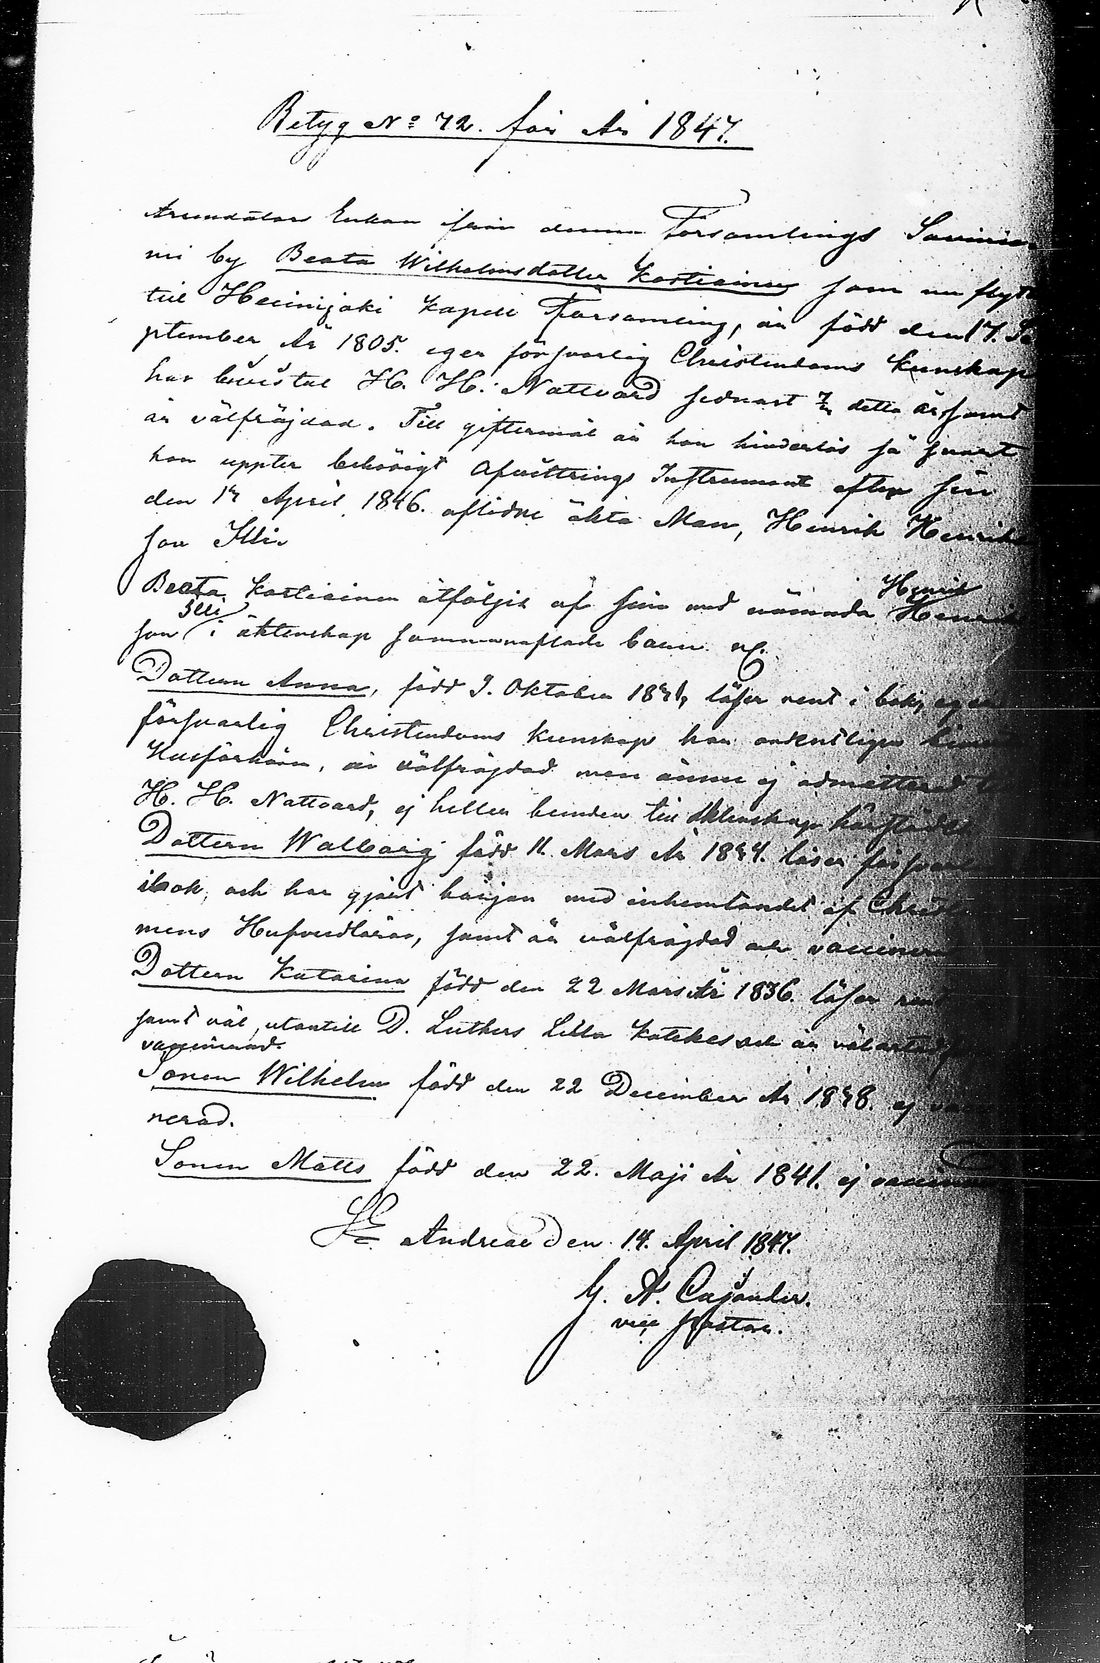 Betyg No 72. för År 1847.
Enkan från denna Församlings
mi by Beata Wilhelmsdotter Kostiainen som nu flytt
till Heinijoki Kapell Församling, är född den 17. Se
ptember År 1805. eger försvarlig Christendoms Kunskap
har bevistat H. H. Nattvard sednast detta år samt
är välfräjdad. Till giftermål är hon hinderlös så snart
hon uppter behörigt Afvittrings Instrument efter sin
den 14 April 1846. aflidne äkta Man, Henrik Henriks
son Illi.
Beata Kostiainen åtföljes af sina med nämnda Henrik Henriks
son Illi i äktenskap sammanaflade barn
Dottern Anna, född 9. Oktober läser rent i bok, eger
försvarlig Christendoms Kunskap har ordentligen
Husförhören, är välfräjdad men ännu ej admitterad
H. H. Nattvard, ej heller bunden till Äktenskap härstädes
Dottern Walborg född 11. Mars År läser försvarl
i bok, och har gjort början med inhemtandet af Christe
mens Hufvudläror, samt är välfräjdad och vaccinera
Dottern Katarina född den 22 Mars År 1836. läser rent
samt väl utantill D. Luthers Lilla Katekes och är välartad
vaccinerad.
Sonen Wilhelm född den 22 December År ej vacci
nerad.
Sonen Matts född den 22. Maji År 1841. ej vaccinerad
St Andreae den 14. April 1847.
G. A. Cajander.
vice pastor.